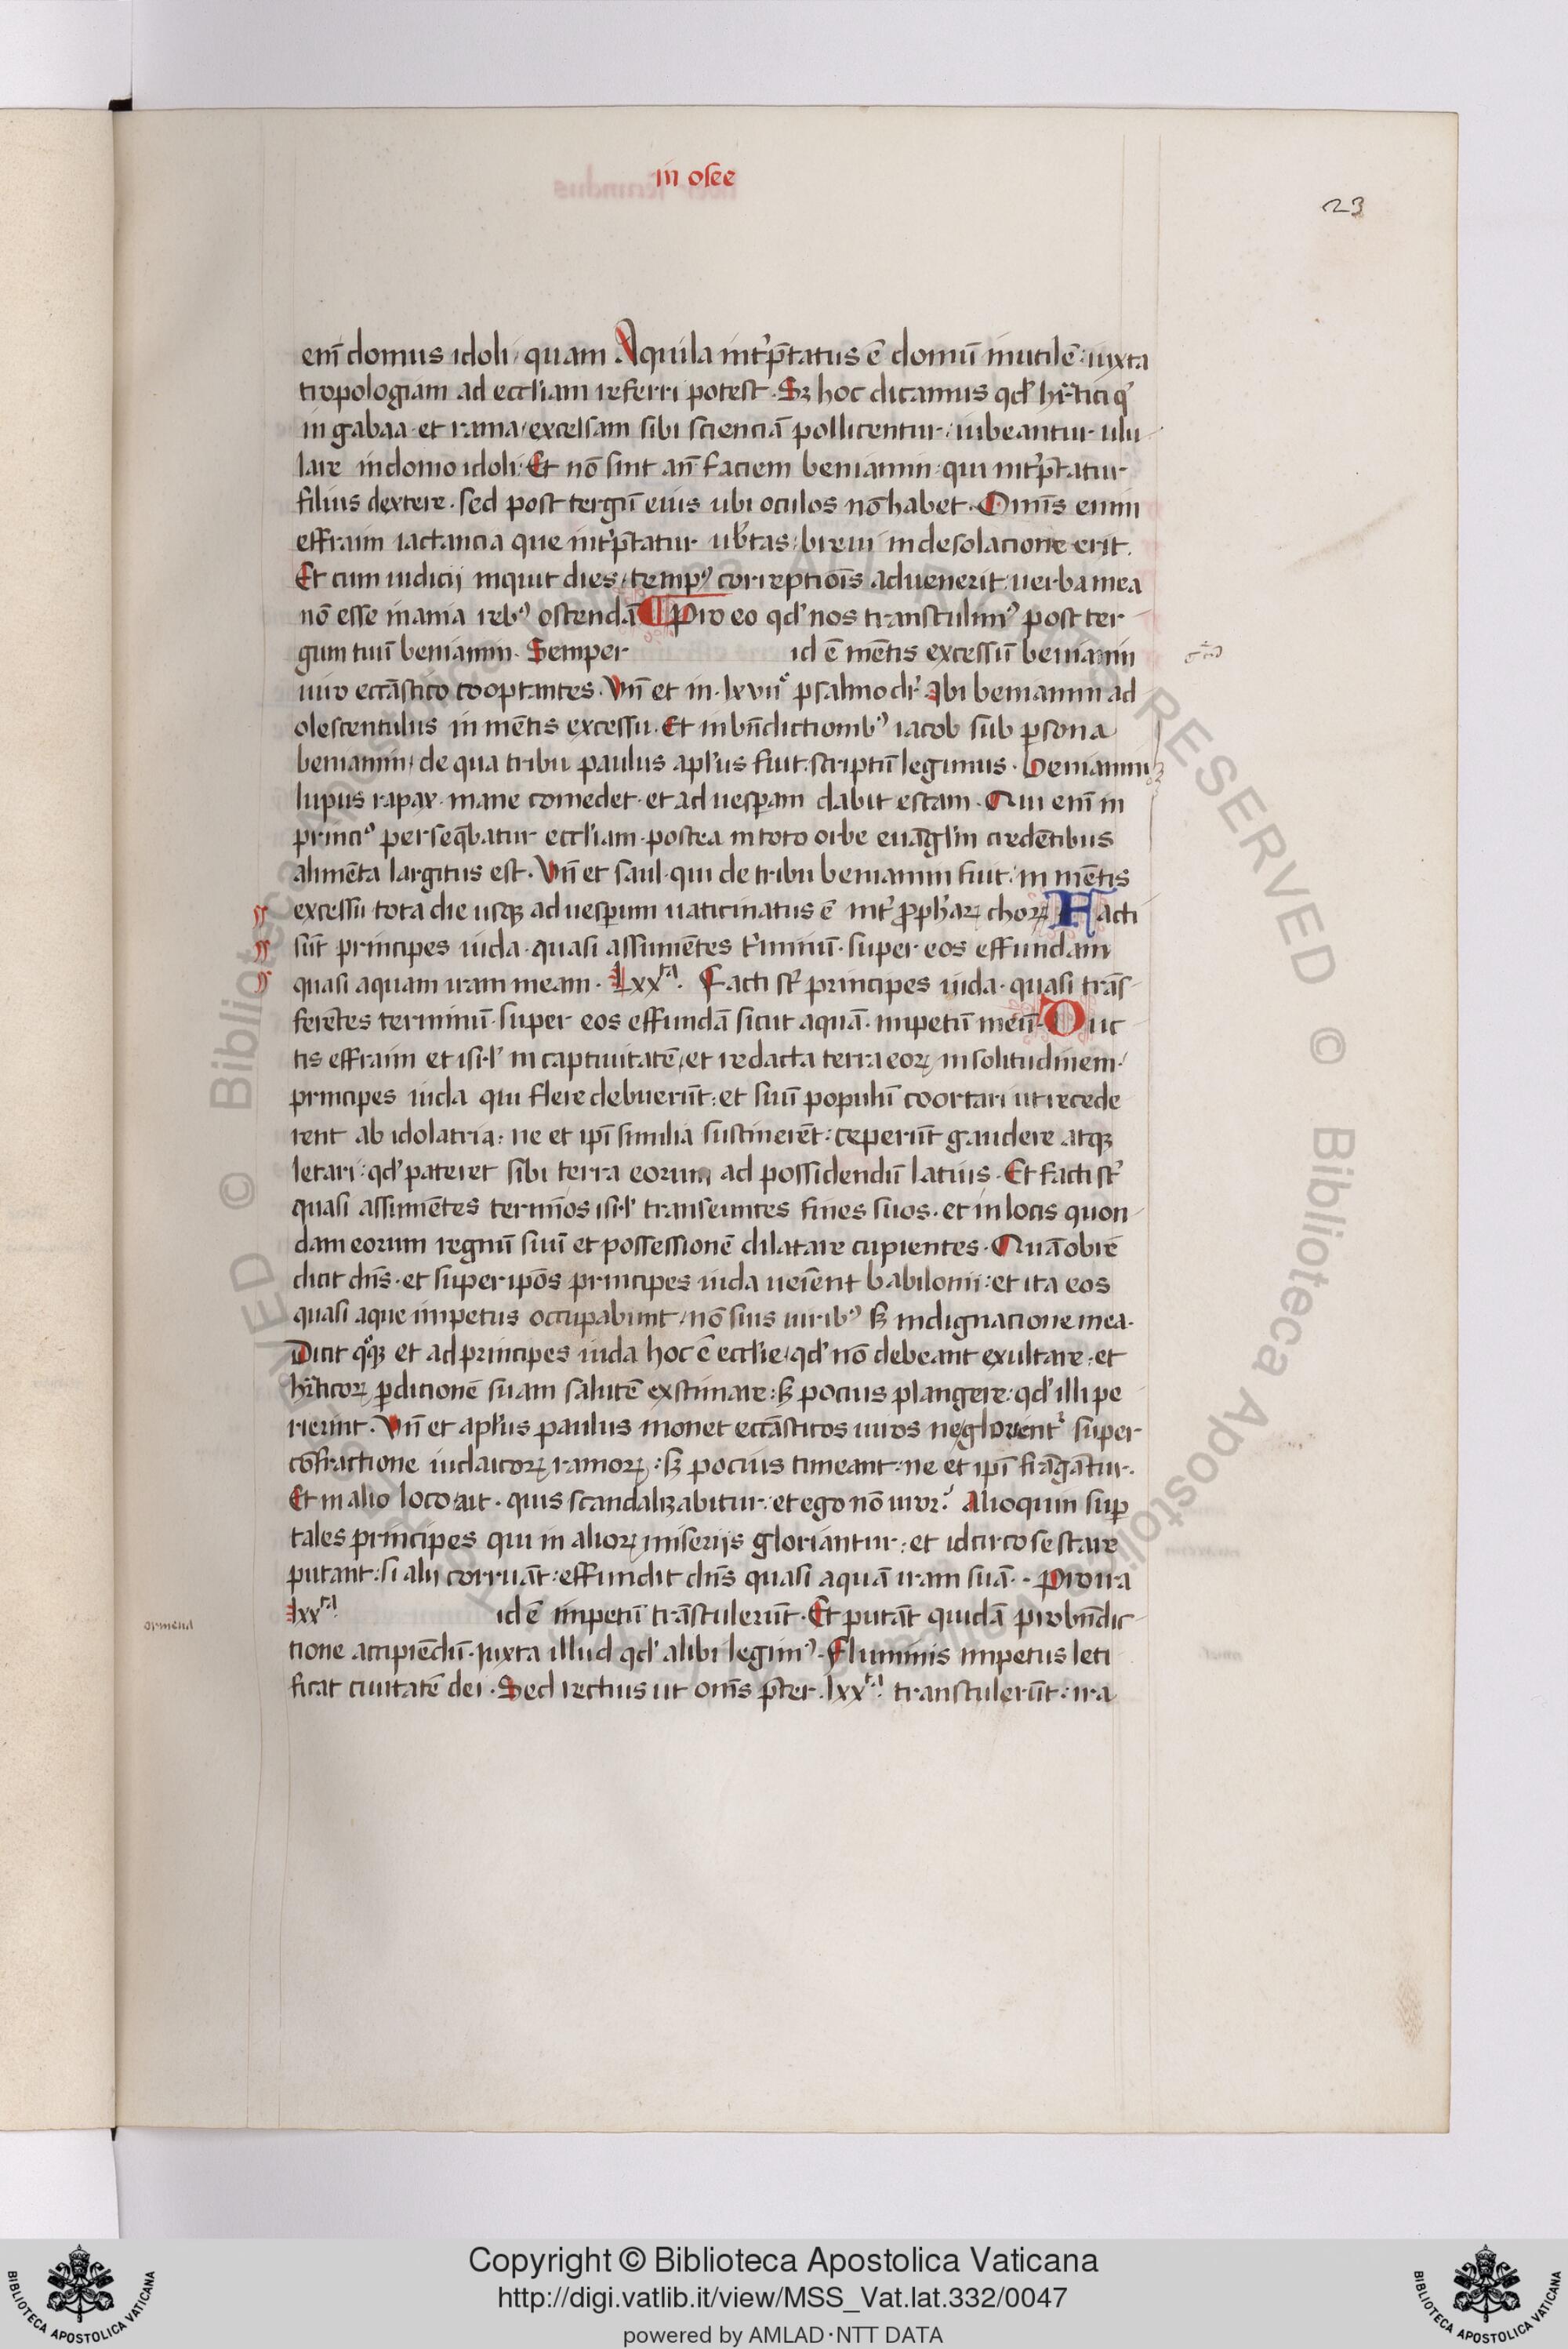 in osee
23
enī domus idoli, quam Aquila int'p̄tatus ē domū inutilē: iuxta
tropologiam ad eccl'iam referri potest. Sꝫ hoc dicamus qd' hr̄etici q'
in gabaa et rama, excelsam sibi scienciā pollicentur: iubeantur ulu-
lare in domo idoli. Et nō sint an̄ faciem beniamin: qui int'p̄tatur
filius dextere. sed post tergū eius ubi oculos nō habet. Om̄is enim
effraim iactancia que int'p̄tatur ub'tas: breui in desolacione erit.
Et cum iudicij inquit dies, tempꝰ correptiōis aduenerit: uerba mea
nō esse inania rebꝰ ostendā ¶ Pro eo qd' nos transtulimꝰ post ter-
gum tuū beniamin. Semper id ē mētis excessū beniamin
uiro eccāstico cooptantes. Vn̄ et in lxvii° psalmo dr̄. Ibi beniamin ad
olescentulus in mētis excessu. Et in bn̄dictionibꝰ iacob sub ꝑsona
beniamin, de qua tribu paulus apl'us fuit, scriptū legimus. beniamin
lupus rapax mane comedet. et ad uesꝑam dabit escam. Qui enī in
princiꝰ perseq̄batur eccl'iam. postea in toto orbe euāgl'm credētibus
alimēta largitus est. Vn̄ et saul qui de tribu beniamin fuit: in mētis
excessu tota die usqꝫ ad uesꝑum uaticinatus ē int' ꝓph'aꝝ choꝝ Facti
sūt principes iuda quasi assumētes t'minū. super eos effundam
quasi aquam iram meam. Lxxta. Facti st̄ principes iuda. quasi trās-
ferētes terminū. super eos effundā sicut aquā. impetū meū. Duc
tis effraim et isr̄l' in captiuitatē, et redacta terra eoꝝ in solitudinem.
principes iuda qui flere debuerūt: et suū populū coortari ut recede
rent ab idolatria: ne et ipī similia sustinerēt: ceperūt gaudere atqꝫ
letari: qd' pateret sibi terra eorum ad possidendū latius. Et facti st̄
quasi assumētes termīos isr̄l' transeuntes fines suos. et in locis quon-
dam eorum regnū suū et possessionē dilatare cupientes. Quāobrē
dicit dn̄s. et super ipōs principes iuda ueiēnt babilonii: et ita eos
quasi aque impetus occupabunt, nō suis uiribꝰ sꝫ indignacione mea.
Dicit q°qꝫ et ad principes iuda hoc ē eccl'ie, qd' nō debeant exultare. et
hr̄eticoꝝ ꝑdicionē suam salutē exstimare: sꝫ pocius plangere: qd' illi pe
rierint. Vn̄ et apl'us paulus monet eccāsticos uiros ne glorient' super
cōfractione iudaicoꝝ ramoꝝ: sꝫ pocius timeant: ne et ipī frāgātur.
Et in alio loco ait. quis scandalizabitur: et ego nō uror? Alioquin suꝑ
tales principes qui in alioꝝ miserijs gloriantur: et idcirco se stare
putant: si alij corruāt: effundit dn̄s quasi aquā iram suā. Pro ira
lxxta id ē impetū trāstulerūt. Et putāt quidā pro bn̄dic-
tione accipiendū. iuxta illud qd' alibi legimꝰ. Fluminis impetus leti
ficat ciuitatē dei. Sed rectius ut om̄s p̄ter lxxta transtulerūt: ira
Copyright © Biblioteca Apostolica Vaticana
http://digi.vatlib.it/view/MSS_Vat.lat.332/0047
powered by AMLAD·NTT DATA